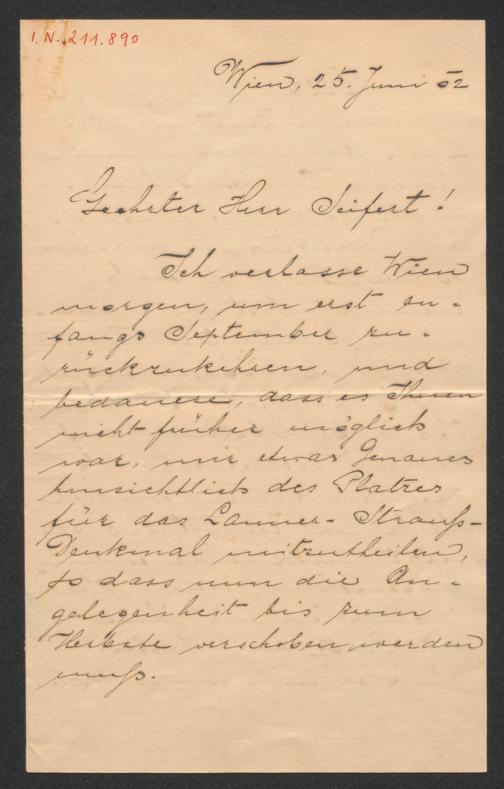 I. N. 211.890
Wien, 25. Juni 02
Geehrter Herr Seifert!
Ich verlasse Wien
morgen, um erst an-
fangs September zu-
rückzukehren, und
bedauere, dass es Ihnen
nicht früher möglich
war, mir etwas Genaues
hinsichtlich des Platzes
für das Lanner-Strauß-
Denkmal mitzutheilen,
so dass nun die An-
gelegenheit bis zum
Herbste verschoben werden
muß.